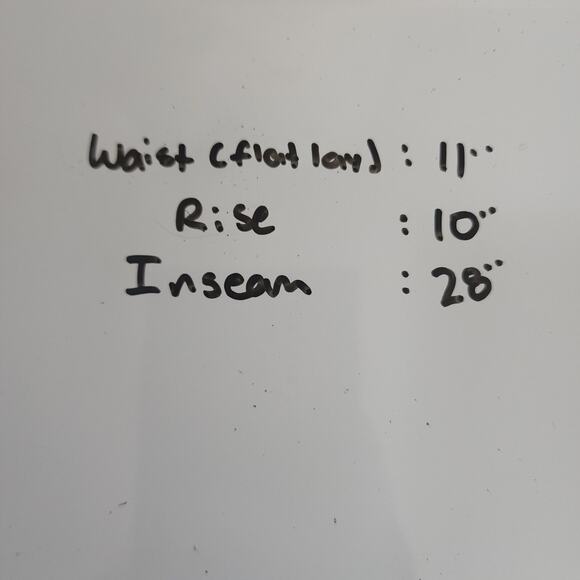 Waist (flat lay) : 11"
Rise : 10"
Inseam : 28"